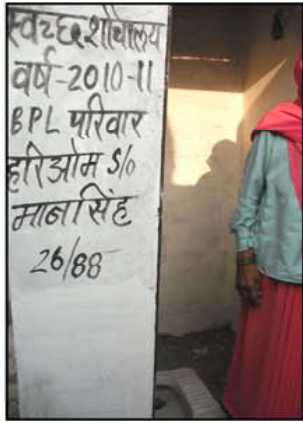 स्वच्छ शौचालय
वर्ष-2010-11
BPL परिवार
हरिओम S/o
मानसिंह
26/88